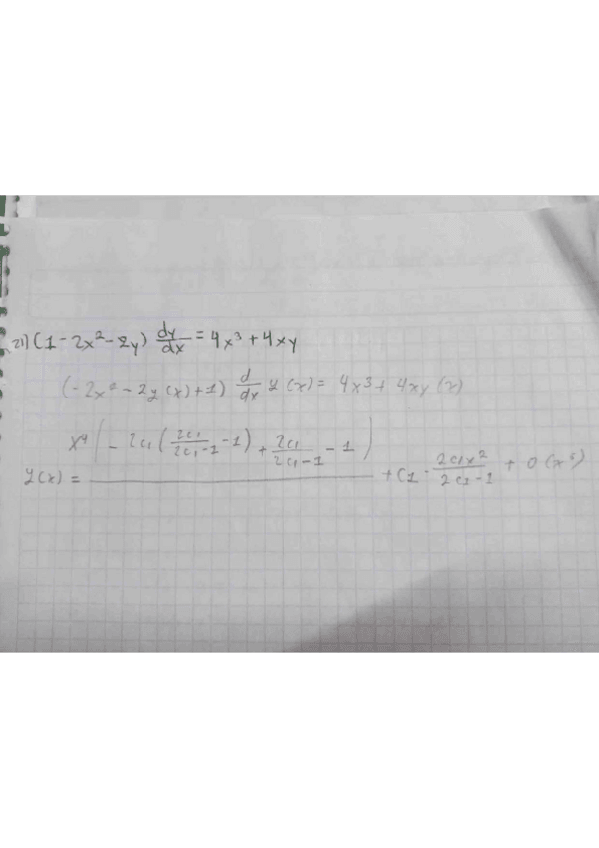 21) (1 - 2x² - 2y) dy/dx = 4x³ + 4xy
(-2x² - 2y(x) + 1) d/dx y(x) = 4x³ + 4xy(x)
y(x) = x⁴(-2c₁(2c₁/2c₁-1 -1) + 2c₁/2c₁-1 - 1) + C1 - 2c₁x²/2c₁-1 + O(x⁵)